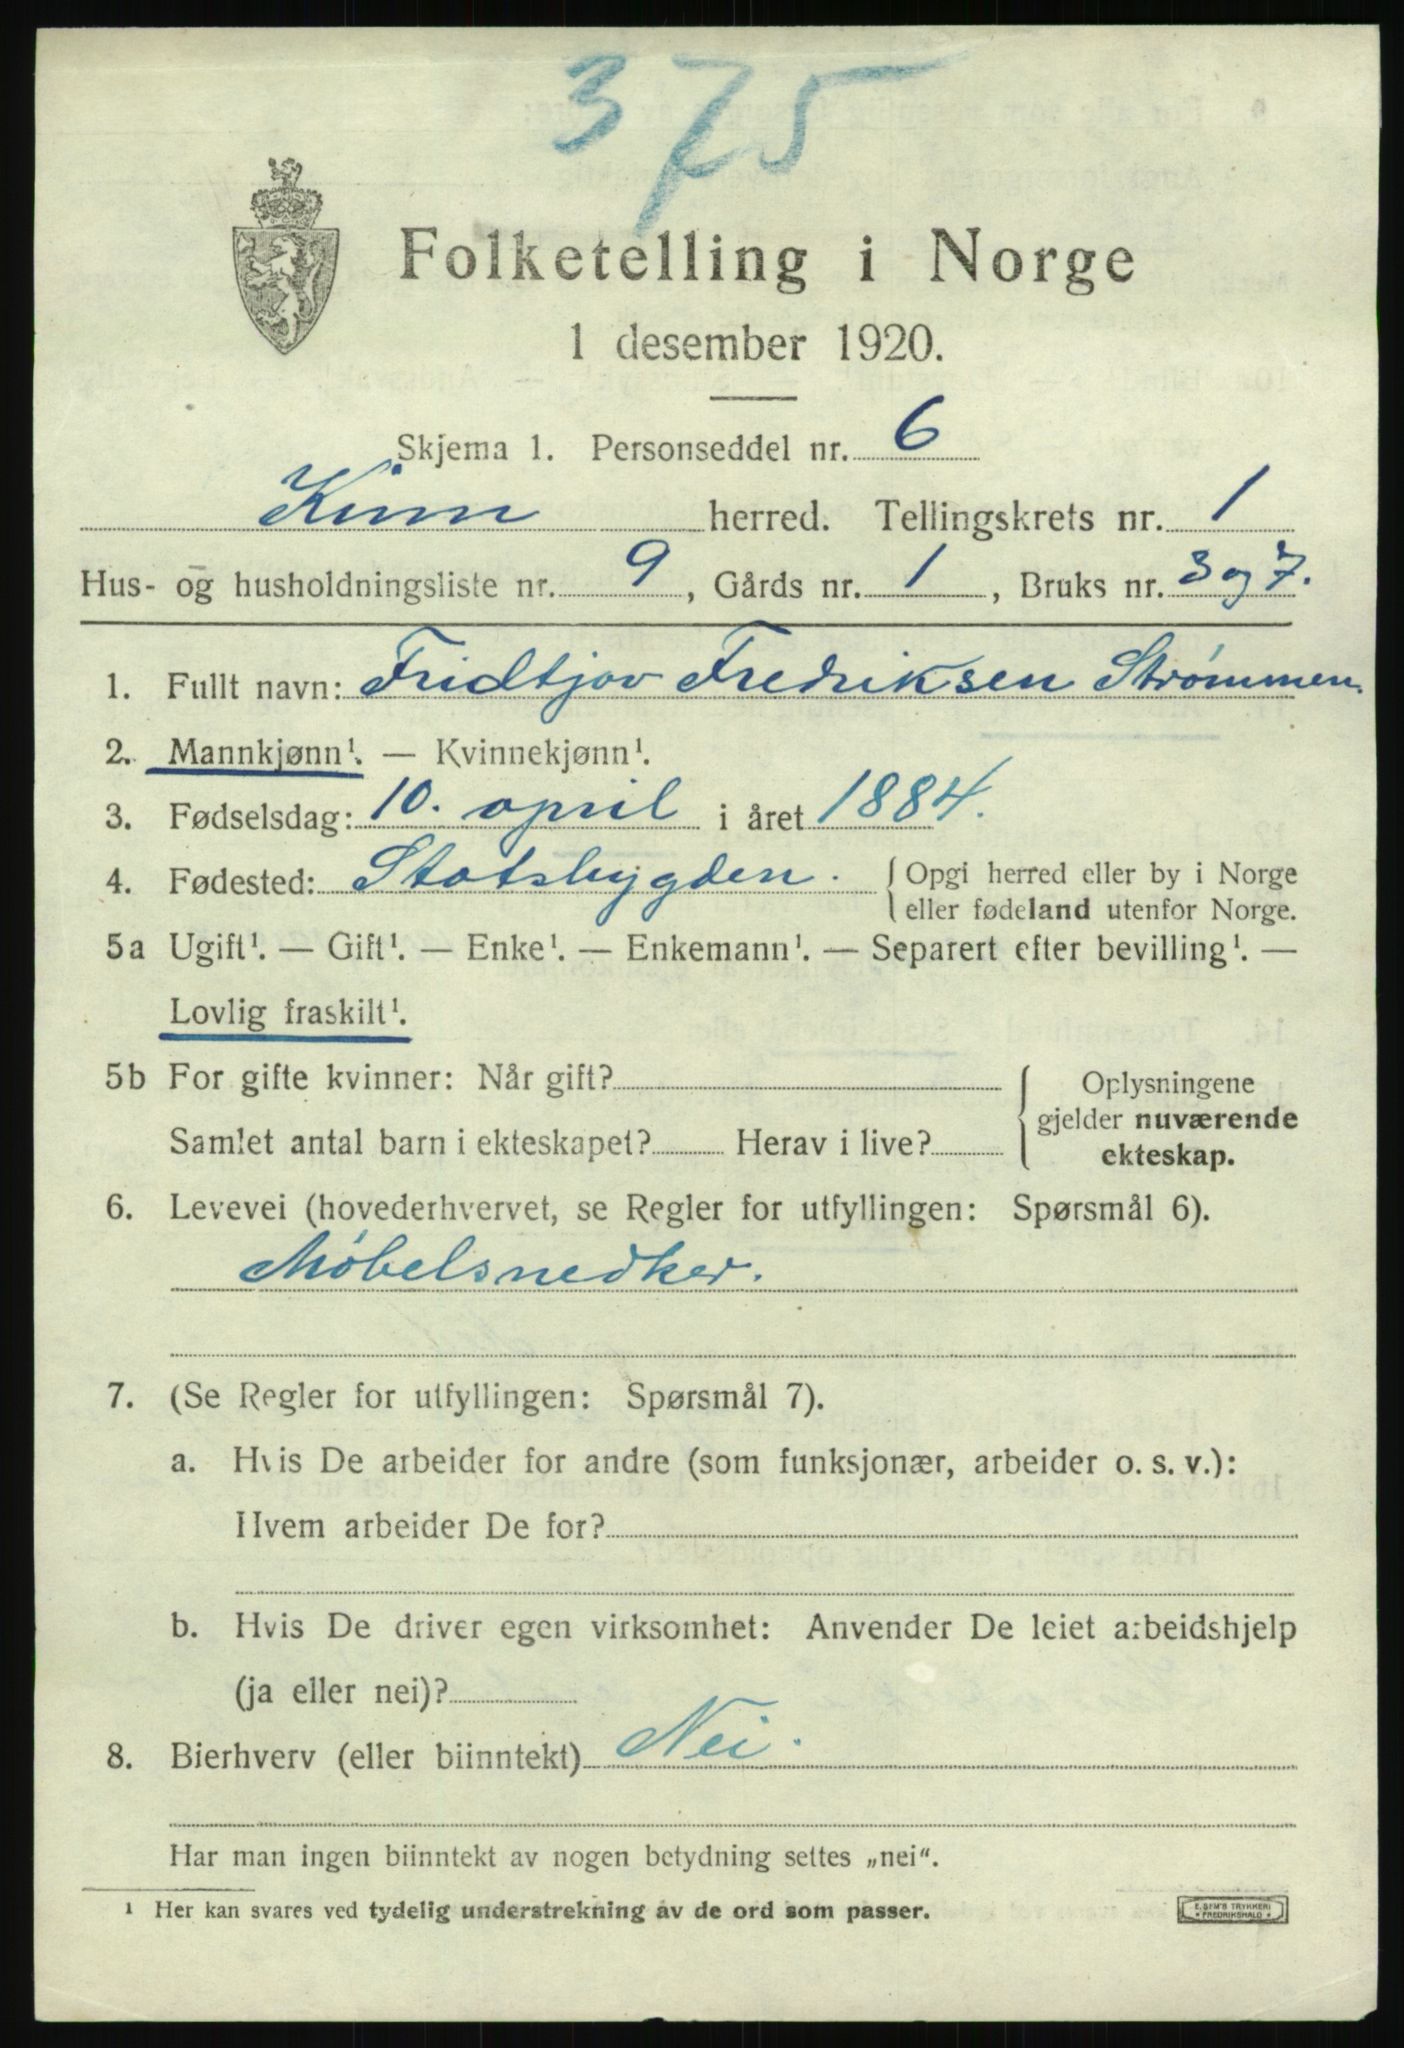 375
Folketelling i Norge
1 desember 1920.
Skjema 1. Personseddel nr. 6
Kinn herred. Tellingskrets nr. 1
Hus- og husholdningsliste nr. 9, Gårds nr. 1, Bruks nr. 3 og 7.
1. Fullt navn: Fridtjov Fredriksen Strømmen.
2. Mannkjønn¹. — Kvinnekjønn¹.
3. Fødselsdag: 10. april i året 1884.
4. Fødested: Statsbygden. { Opgi herred eller by i Norge
eller fødeland utenfor Norge.
5a Ugift¹. — Gift¹. — Enke¹. — Enkemann¹. — Separert efter bevilling¹. —
Lovlig fraskilt¹.
5b For gifte kvinner: Når gift? { Oplysningene
gjelder nuværende
Samlet antal barn i ekteskapet? Herav i live? ekteskap.
6. Levevei (hovederhvervet, se Regler for utfyllingen: Spørsmål 6).
Møbelsnedker.
7. (Se Regler for utfyllingen: Spørsmål 7).
a. Hvis De arbeider for andre (som funksjonær, arbeider o. s. v.):
Hvem arbeider De for?
b. Hvis De driver egen virksomhet: Anvender De leiet arbeidshjelp
(ja eller nei)?
8. Bierhverv (eller biinntekt) Nei.
Har man ingen biinntekt av nogen betydning settes „nei“.
¹ Her kan svares ved tydelig understrekning av de ord som passer.
E. SEM'S TRYKKERI
* FREDRIKSHALD *